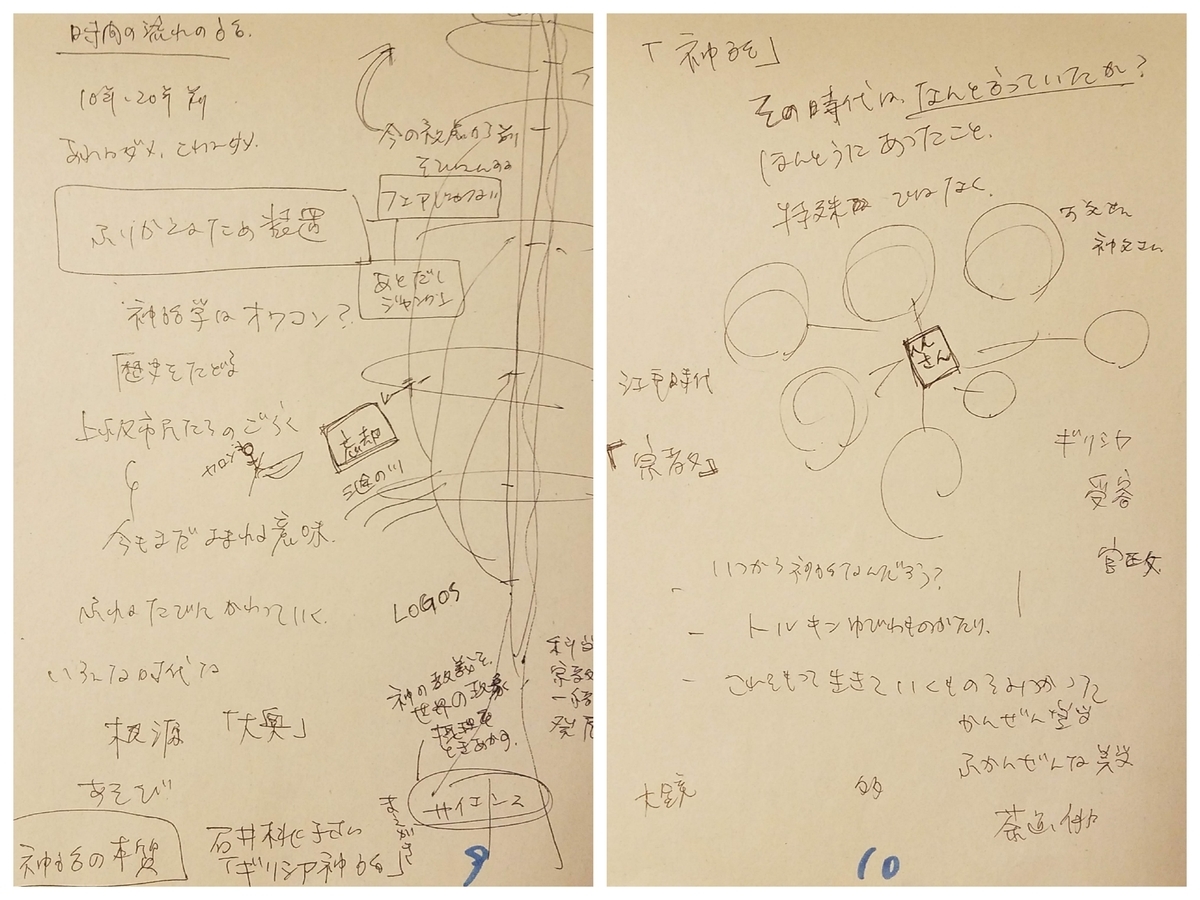 時間の流れの話.
10年、20年前
あれはダメ、これはダメ.
ふりかえるため装置
神話学はオワコン?
「歴史をたどる
上級市民たちのごらく
今もまだよまれる意味.
ふれるたびにかわっていく.
いろんな時代な
根源 「大奥」
あそび
神話の本質
石井桃子さん
「ギリシア神話」
まえがき
今の視点から前
フェアじゃない
あとだし
ジャンケン
忘却
三途の川
カロン
LOGOS
神の教義を.
世界の
ときあかす.
サイエンス
科学
宗教
一緒
発展
9
「神話」
その時代は、なんと言っていたか?
ほんとうにあったこと.
特殊 ではなく.
さん
江戸時代
『宗教』
ギリシャ
受容
いつから神話なんだろう?
- トルキンゆびわものがたり.
- これをもって生きていくものをみつかって
かんぜん
ふかんぜんな美
大鏡
茶道
10